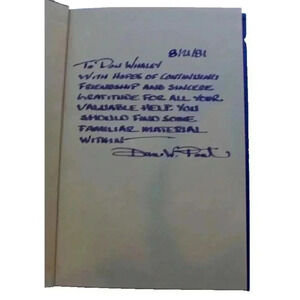 8/21/81
To Don Whaley
With hopes of continued
friendship and sincere
gratitude for all your
valuable help. You
should find some
familiar material
within